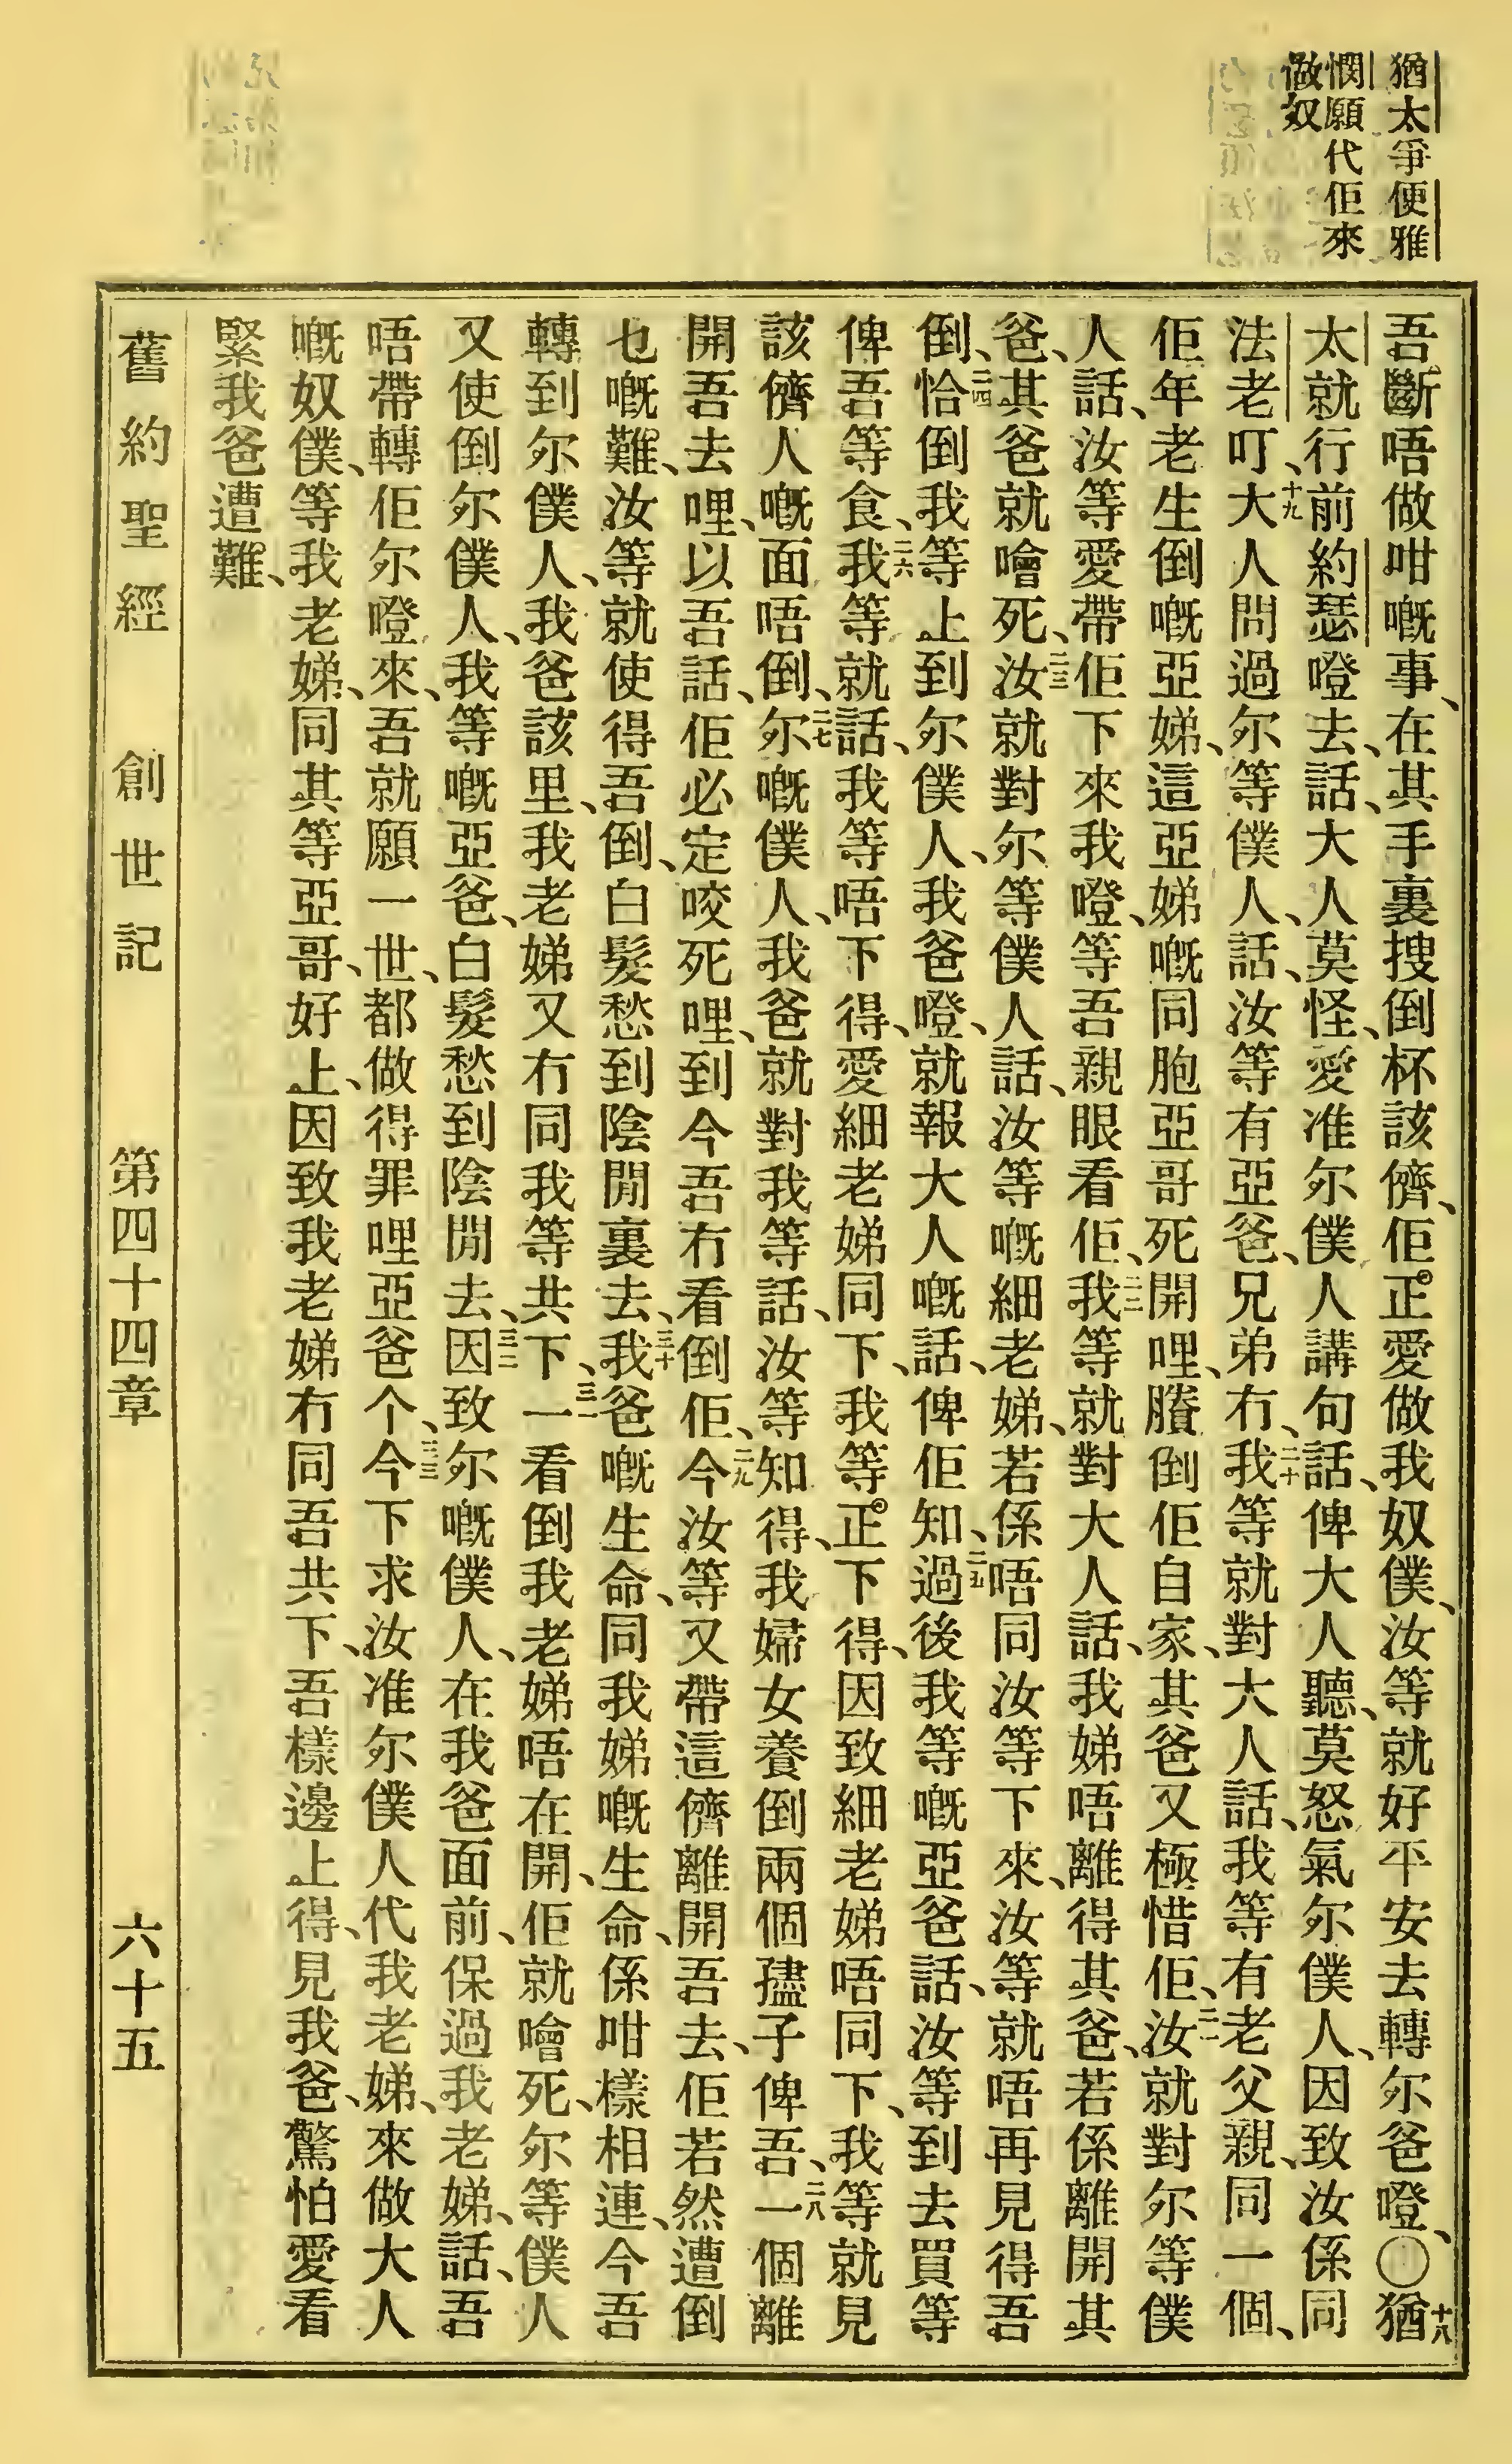 猶太爭便雅
憫願代佢來
做奴
吾斷唔做咁嘅事、在其手裏搜倒杯該儕、佢正愛做我奴僕、汝等就好平安去轉尔爸噔、〇十八猶
太就行前約瑟噔去、話、大人莫怪、愛准尔僕人講句話、俾大人聽、莫怒氣尔僕人、因致汝係同
法老叮、十九大人問過尔等僕人、話、汝等有亞爸、兄弟冇、二十我等就對大人話、我等有老父親、同一個、
佢年老生倒嘅亞娣、這亞娣嘅同胞亞哥死開哩、賸倒佢自家、其爸又極惜佢、二一汝就對尔等僕
人話、汝等愛帶佢下來我噔、等吾親眼看佢、二二我等就對大人話、我娣唔離得其爸、若係離開其
爸、其爸就噲死、二三汝就對尔等僕人話、汝等嘅細老娣、若係唔同汝等下來、汝等就唔再見得吾
倒、二四恰倒我等上到尔僕人、我爸噔、就報大人嘅話、俾佢知、二五過後我等嘅亞爸話、汝等到去買等
俾吾等食、二六我等就話、我等唔下得、愛細老娣同下、我等正下得、因致細老娣唔同下、我等就見
該儕人嘅面唔倒、二七尔嘅僕人、我爸就對我等話、汝等知得、我婦女養倒兩個孻子俾吾、二八一個離
開吾去哩、以吾話、佢必定咬死哩、到今吾冇看倒佢、二九今汝等又帶這儕離開吾去、佢若然遭倒
乜嘅難、汝等就使得吾倒、白髮愁到陰間裏去、三十我爸嘅生命、同我娣嘅生命、係咁樣相連、今吾
轉到尔僕人、我爸該里、我老娣又冇同我等共下、三一一看倒我老娣唔在開、佢就噲死、尔等僕人
又使倒尔僕人、我等嘅亞爸、白髮愁到陰間去、三二因致尔嘅僕人、在我爸面前、保過我老娣、話、吾
唔帶轉佢尔噔來、吾就願一世、都做得罪哩亞爸个、三三今下求汝准尔僕人代我老娣、來做大人
嘅奴僕、等我老娣、同其等亞哥、好上、因致我老娣冇同吾共下、吾樣邊上得、見我爸、驚怕愛看
緊我爸遭難、
舊約聖經　創世記　第四十四章　六十五